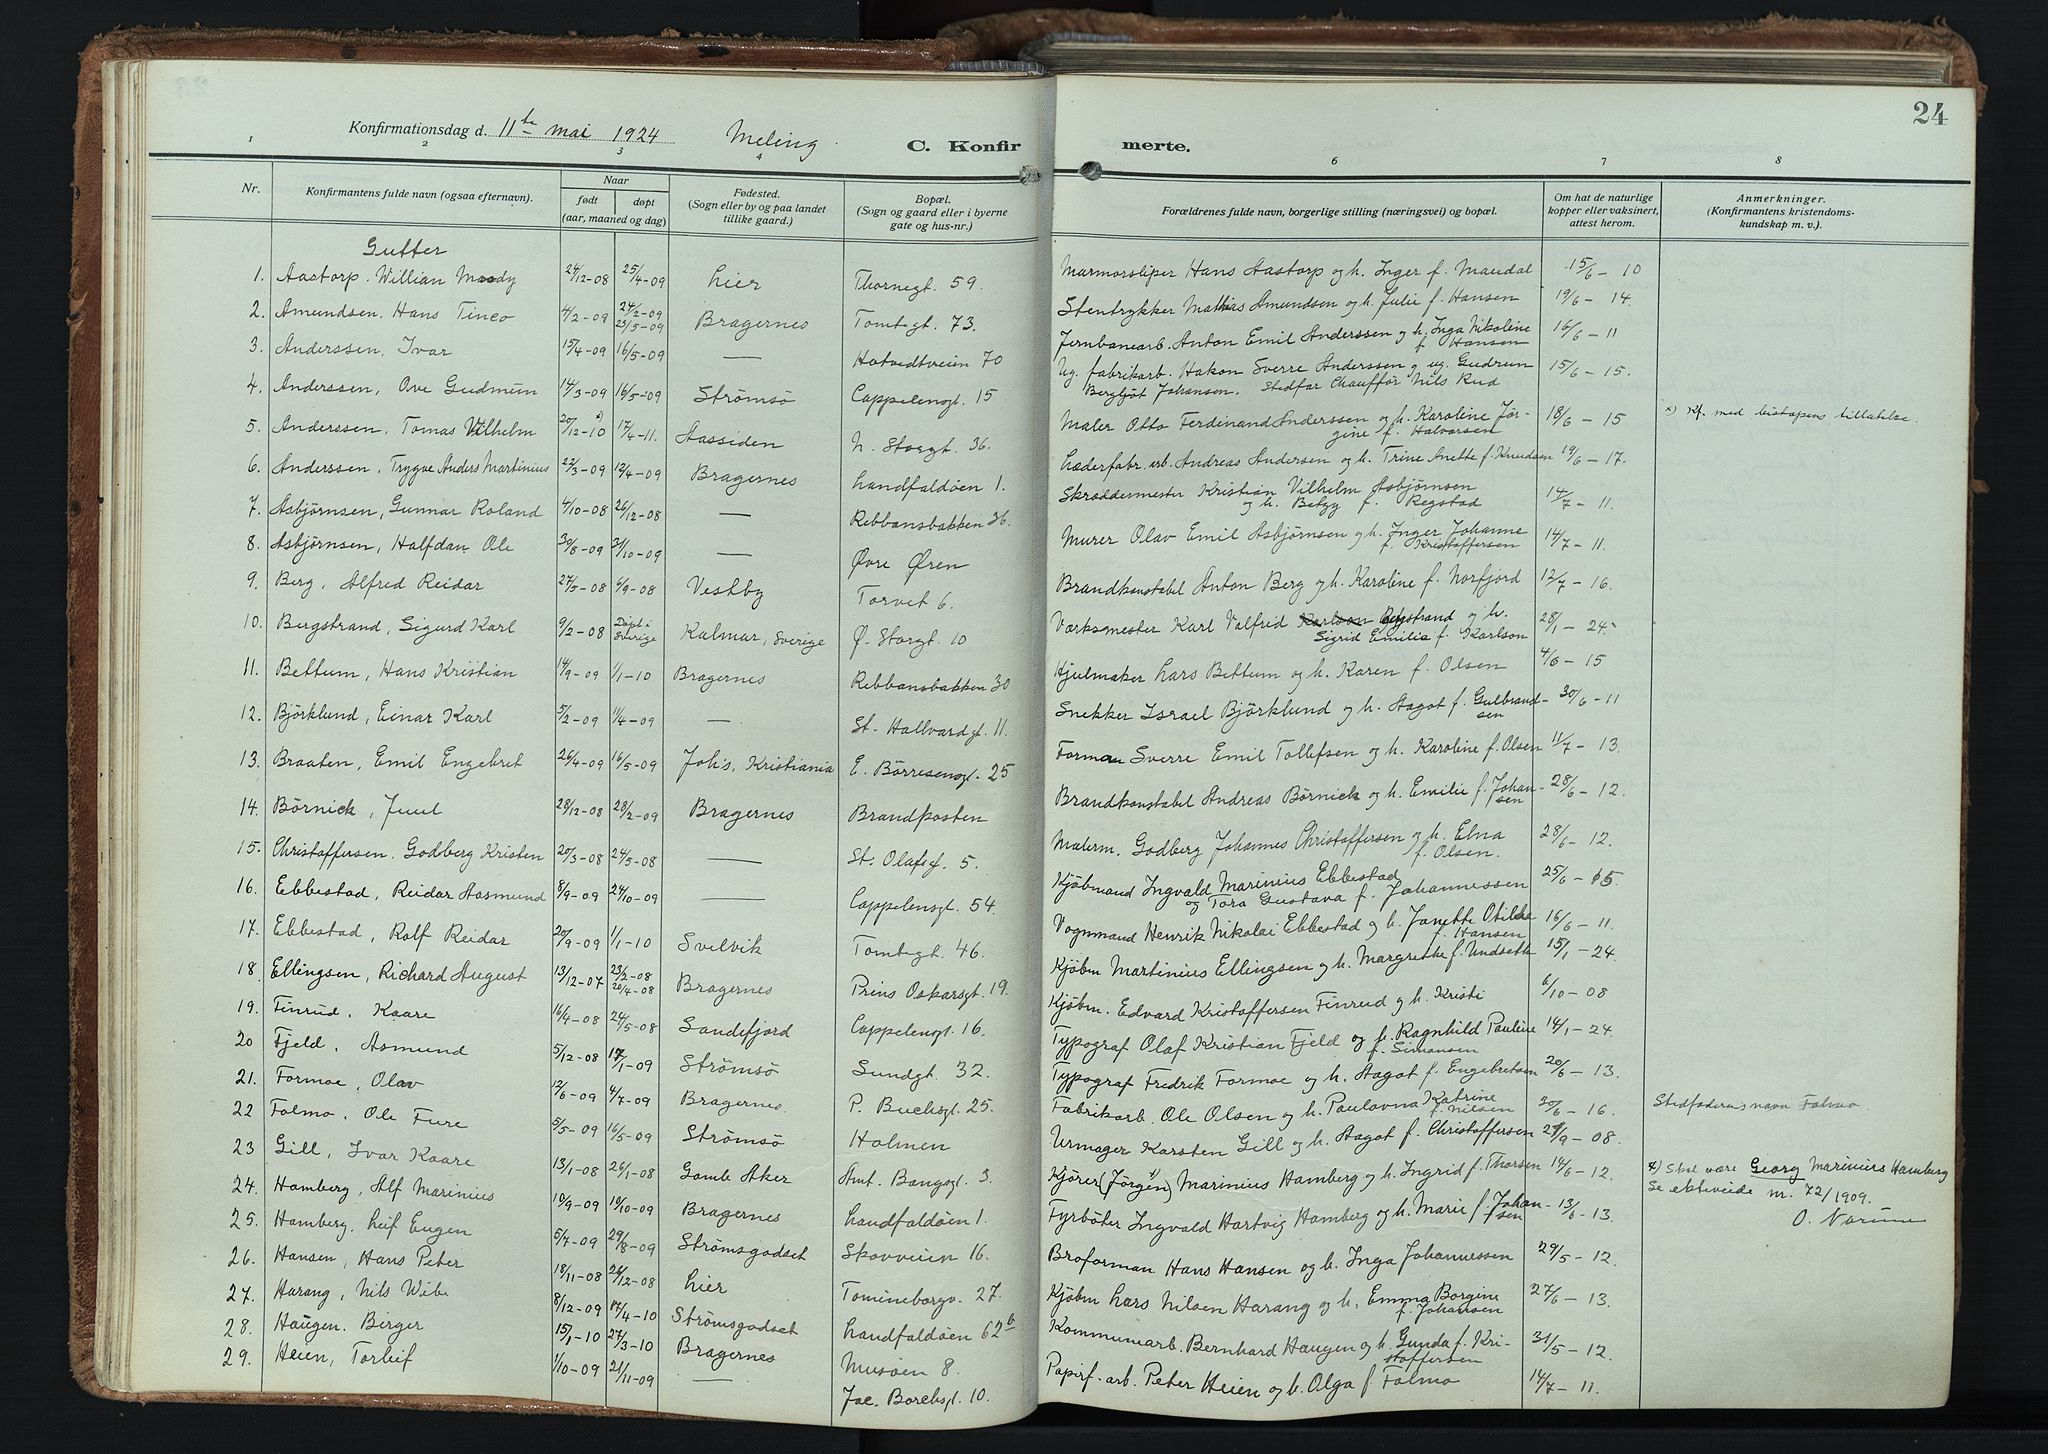 24
Konfirmationsdag d. 11te mai 1924 Meling C. Konfirmerte.
1 2 3 4 6 7 8
Nr.
Konfirmantens fulde navn (ogsaa efternavn).
Naar
født døpt
(aar, maaned og dag)
Fødested.
(Sogn eller by og paa landet
tillike gaard.)
Bopæl.
(Sogn og gaard eller i byerne
gate og hus-nr.)
Forældrenes fulde navn, borgerlige stilling (næringsvei) og bopæl.
Om hat de naturlige
kopper eller vaksinert,
attest herom.
Anmerkninger.
(Konfirmantens kristendoms-
kundskap m. v.).
Gutter
1. Aastorp. Willian Moody 24/12-08 25/4-09 Lier Thornegt. 59. Marmorsliper Hans Aastorp og h. Inger f. Maudal 15/6-10
2. Amundsen. Hans Tinco 4/2-09 24/2-09 23/5-09 Bragernes Tomtegt. 73. Stentrykker Mathias Amundsen og h. Julie f. Hansen 19/6-14.
3. Anderssen, Ivar 15/4-09 16/5-09 — Hotvedtveien 70 Jernbanearb. Anton Emil Anderssen og h. Inga Nikoline f. Hansen 16/6-11
4. Anderssen, Ove Gudmün 14/3-09 16/5-09 Strømsø Cappelensgt. 15 Ug. fabrikarb. Hakon Sverre Anderssen og ug. Gudrun Bergljöt Johansen. Stedfar Chauffør Nils Rud 15/6-15.
5. Anderssen, Tomas Vilhelm 20/12-10 x) 17/4-11. Aassiden N. Storgt. 36. Maler Otto Ferdinand Anderssen og h. Karoline Jør-gine f. Halvorsen 18/6-15 x) Kf. med biskopens tillatelse.
6. Anderssen, Trygve Anders Martinius 22/3-09 12/4-09 Bragernes Landfaldøen 1. Læderfabr. arb. Andreas Andersen og h. Trine Anette f. Knudsen 19/6-17.
7. Asbjørnsen, Gunnar Roland 4/10-08 26/12-08 — Ribbansbakken 36. Skræddermester Kristian Vilhelm Asbjørnsen og h. Betzy f. Regstad 14/7-11.
8. Asbjørnsen, Halfdan Ole 30/8-09 31/10-09 — Øvre Øren Murer Olav Emil Asbjørnsen og h. Inger Johanne f. Kristoffersen 14/7-11.
9. Berg, Alfred Reidar 27/5-08 6/9-08 Vestby Torvet 6. Brandkonstabel Anton Berg og h. Karoline f. Norfjord 12/7-16.
10. Bergstrand, Sigurd Karl 9/2-08 Døpt i Sverige Kalmar, Sverige Ø. Storgt. 10 Værksmester Karl Valfrid Karlson Bergstrand og h. Sigrid Emilia f. Karlson 28/1-24.
11. Bettum, Hans Kristian 14/9-09 1/1-10 Bragernes Ribbansbakken 30 Hjulmaker Lars Bettum og h. Karen f. Olsen 4/6-15
12. Björklund, Einar Karl 5/2-09 11/4-09 — St. Hallvardsg. 11. Snekker Israel Björklund og h. Aagot f. Gulbrand-sen 30/6-11
13. Braaten, Emil Engebret 26/4-09 16/5-09 Joh's, Kristiania E. Börresensgt. 25 Formon Sverre Emil Tollefsen og h. Karoline f. Olsen 11/7-13.
14. Börnick, Juul 28/12-08 28/2-09 Bragernes Brandposten Brandkonstabel Andreas Börnick og h. Emilie f. Johan-sen 28/6-12.
15. Christoffersen. Godberg Kristen 20/3-08 24/5-08 — St. Olafsg. 5. Malerm. Godberg Johannes Christoffersen og h. Elna f. Olsen. 28/6-12.
16. Ebbestad, Reidar Aasmund 8/9-09 24/10-09 — Cappelensgt. 54. Kjøbmand Ingvald Marinius Ebbestad og Tora Gustava f. Johannessen 25/6-15.
17. Ebbestad, Rolf Reidar 20/9-09 1/1-10 Svelvik Tomtegt. 46. Vognmand Henrik Nikolai Ebbestad og h. Janette Otilde f. Hansen 16/6-11.
18 Ellingsen, Richard August 13/12-07 23/2-08 20/4-08 Bragernes Prins Oskarsgt. 19. Kjøbm Martinius Ellingsen og h. Margrethe f. Undseth 15/1-24.
19. Finrud. Kaare 16/4-08 24/5-08 Sandefjord Cappelensgt. 16. Kjøbm. Edvard Kristoffersen Finrud og h. Kristi 6/10-08
20 Fjeld. Asmund 5/12-08 17/1-09 Strømsø Sundgt. 32. Typograf Olaf Kristian Fjeld og h. Ragnhild Pauline f. Simonsen 14/1-24.
21. Formoe, Olav 12/6-09 4/7-09 Bragernes. P. Buchsgt. 25. Typograf Fredrik Formoe og h. Aagot f. Engebretsen 20/6-13.
22 Folmo. Ole Fure 5/5-09 16/5-09 Strømsø Holmen Fabrikarb. Ole Olsen og h. Paulovna Katrine f. Nilsen 30/6-16. Stedfaderens navn Folmo
23 Gill, Ivar Kaare 13/1-08 26/1-08 Gamle Aker Amt. Bangsgt. 3. Urmager Karsten Gill og h. Aagot f. Christoffersen 29/9-08
24. Hamberg, Alf Marinius 10/9-09 10/10-09 Bragernes Landfaldøen 1. Kjører (Jörgen) x) Marinius Hamberg og h. Ingrid f. Thorsen 14/6-12. x) Skal være Georg Marinius Hamberg
Se ektevidde nr. 72/1909.
25. Hamberg. Leif Eugen 5/4-09 29/8-09 Strømsgodset Skovveien 16. Fyrböter Ingvald Hartvig Hamberg og h. Marie f. Johan-sen 13/6-13.
26. Hansen, Hans Peter 18/11-08 26/12-08 Lier Tomineborgv. 27. Broforman Hans Hansen og h. Inga Johannessen 29/5-12.
27. Harang, Nils Wibe 8/12-09 17/4-10 Strømsgodset Landfaldøen 62b Kjøbm Lars Nilsen Harang og h. Emma Borgine f. Johansen 27/6-13.
28. Haügen. Birger 15/1-10 27/3-10 Bragernes Musöen 8. Kommunearb. Bernhard Haugen og h. Gunda f. Kri-stoffersen 31/5-12.
29. Heien, Torleif 1/10-09 21/11-09 — Jac. Borchsgt. 10. Papirf. arb. Peter Heien og h. Olga f Folmo 14/7-11.